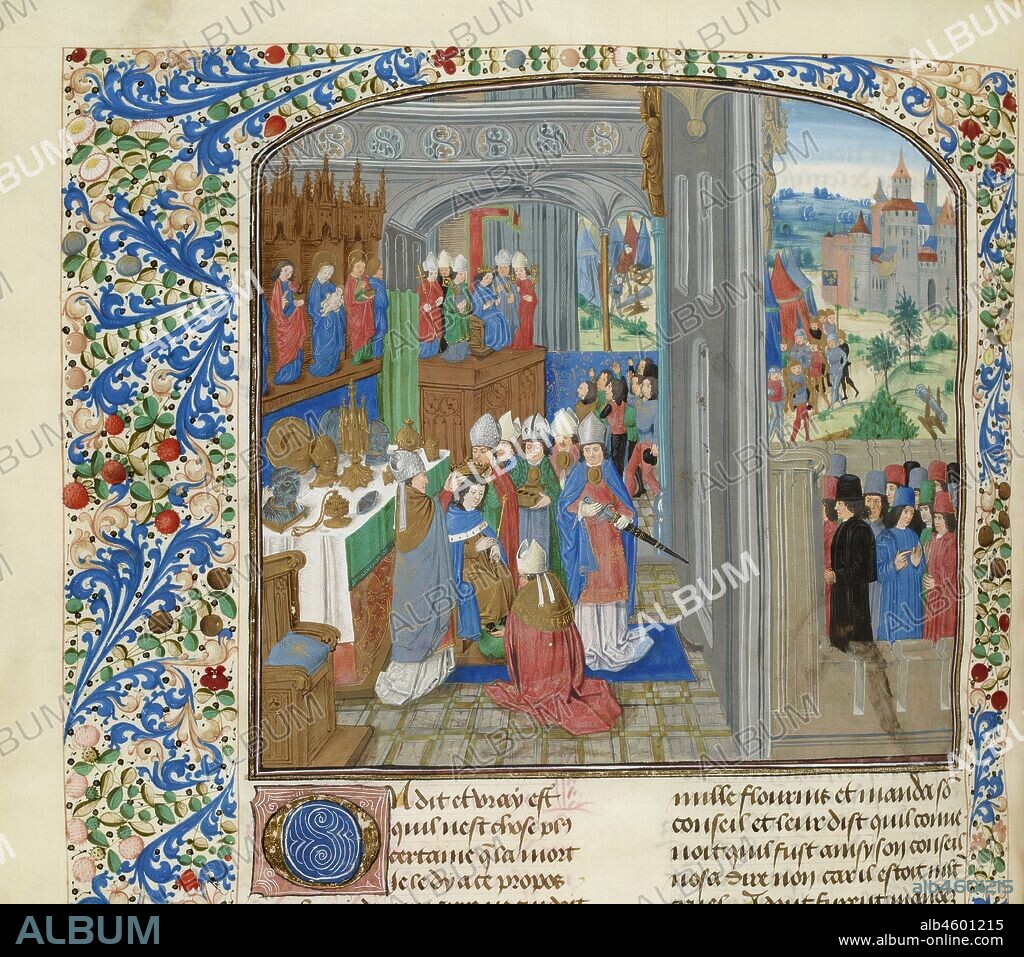 ON dit et vray est
quil nest chose pl9
certaine q la mort
Je le dy a ce propos
mille flourins et manda so
conseil et leur dist quil conue
noit quil fust ainsy son conseil
nosa dire non car il estoit
alb4601215
ALBUM
alb4601215
www.album-online.com